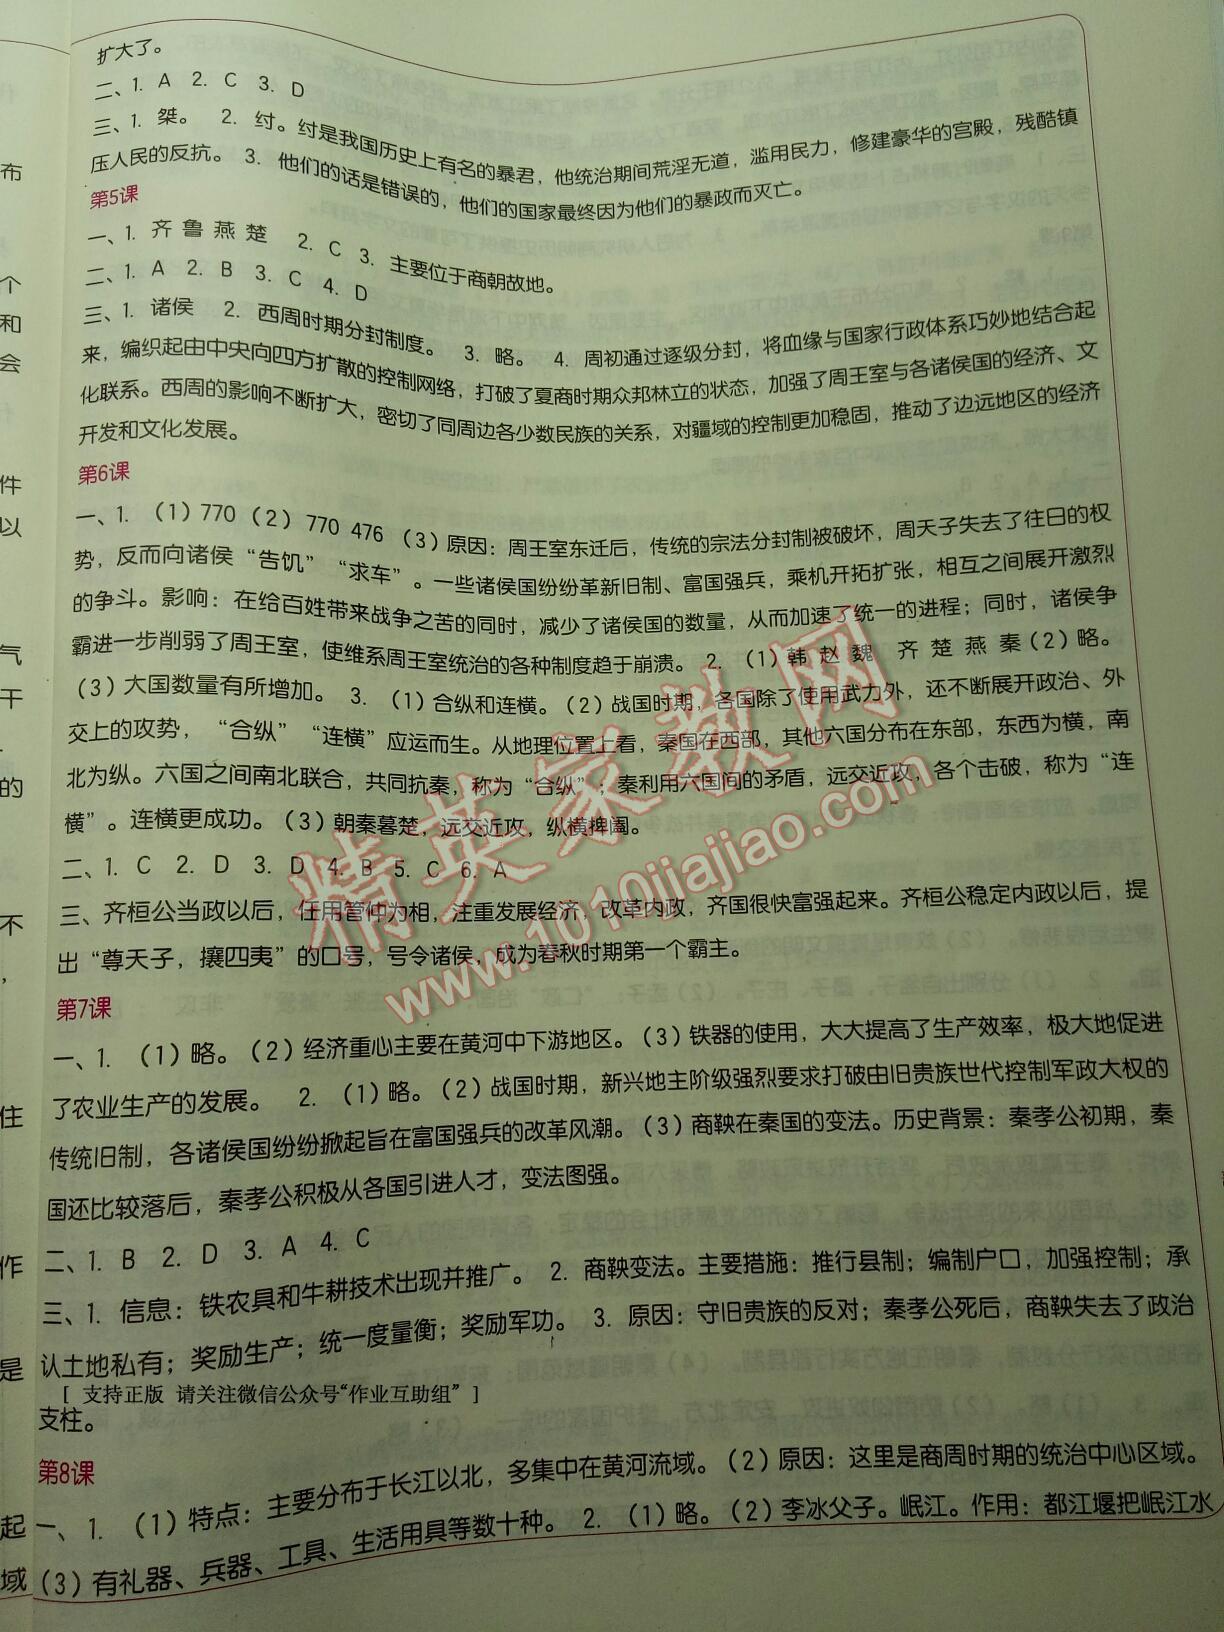 扩大了。
二、1. A 2. C 3. D
三、1. 桀。 2. 纣。纣是我国历史上有名的暴君，他统治期间荒淫无道，滥用民力，修建豪华的宫殿，残酷镇
压人民的反抗。 3. 他们的话是错误的，他们的国家最终因为他们的暴政而灭亡。
第5课
一、1. 齐 鲁 燕 楚 2. C 3. 主要位于商朝故地。
二、1. A 2. B 3. C 4. D
三、1. 诸侯 2. 西周时期分封制度。 3. 略。 4. 周初通过逐级分封，将血缘与国家行政体系巧妙地结合起
来，编织起由中央向四方扩散的控制网络，打破了夏商时期众邦林立的状态，加强了周王室与各诸侯国的经济、文
化联系。西周的影响不断扩大，密切了同周边各少数民族的关系，对疆域的控制更加稳固，推动了边远地区的经济
开发和文化发展。
第6课
一、1. （1）770（2）770 476（3）原因：周王室东迁后，传统的宗法分封制被破坏，周天子失去了往日的权
势，反而向诸侯“告饥”“求车”。一些诸侯国纷纷革新旧制、富国强兵，乘机开拓扩张，相互之间展开激烈
的争斗。影响：在给百姓带来战争之苦的同时，减少了诸侯国的数量，从而加速了统一的进程；同时，诸侯争
霸进一步削弱了周王室，使维系周王室统治的各种制度趋于崩溃。 2. （1）韩 赵 魏 齐 楚 燕 秦（2）略。
（3）大国数量有所增加。 3. （1）合纵和连横。（2）战国时期，各国除了使用武力外，还不断展开政治、外
交上的攻势，“合纵”“连横”应运而生。从地理位置上看，秦国在西部，其他六国分布在东部，东西为横，南
北为纵。六国之间南北联合，共同抗秦，称为“合纵”；秦利用六国间的矛盾，远交近攻，各个击破，称为“连
横”。连横更成功。（3）朝秦暮楚，远交近攻，纵横捭阖。
二、1. C 2. D 3. D 4. B 5. C 6. A
三、齐桓公当政以后，任用管仲为相，注重发展经济，改革内政，齐国很快富强起来。齐桓公稳定内政以后，提
出“尊天子，攘四夷”的口号，号令诸侯，成为春秋时期第一个霸主。
第7课
一、1. （1）略。（2）经济重心主要在黄河中下游地区。（3）铁器的使用，大大提高了生产效率，极大地促进
了农业生产的发展。 2. （1）略。（2）战国时期，新兴地主阶级强烈要求打破由旧贵族世代控制军政大权的
传统旧制，各诸侯国纷纷掀起旨在富国强兵的改革风潮。（3）商鞅在秦国的变法。历史背景：秦孝公初期，秦
国还比较落后，秦孝公积极从各国引进人才，变法图强。
二、1. B 2. D 3. A 4. C
三、1. 信息：铁农具和牛耕技术出现并推广。 2. 商鞅变法。主要措施：推行县制；编制户口，加强控制；承
认土地私有；奖励生产；统一度量衡；奖励军功。 3. 原因：守旧贵族的反对；秦孝公死后，商鞅失去了政治
[ 支持正版 请关注微信公众号“作业互助组” ]
支柱。
第8课
一、1. （1）特点：主要分布于长江以北，多集中在黄河流域。（2）原因：这里是商周时期的统治中心区域。
（3）有礼器、兵器、工具、生活用具等数十种。 2. （1）略。（2）李冰父子。岷江。作用：都江堰把岷江水
精英家教网
www.1010jiajiao.com
布
个
和
会
件
以
气
干
的
不
住
作
是
起
域